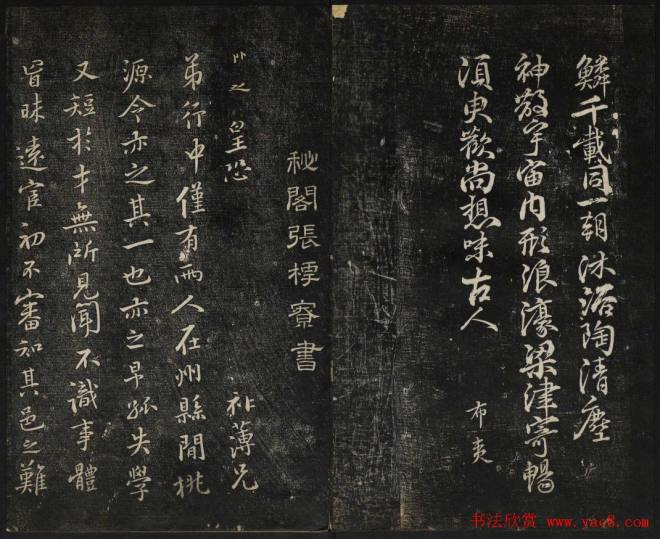 鱗千載同一朝沐浴陶清塵
神散宇宙内形浪濠梁津寄暢
須臾歡尚想味古人
布夷
秘閣張樗寮書
即之皇恐
祚薄兄
弟行中僅有兩人在州縣間桃
源令亦之其一也亦之早孤失學
又短於才無所見聞不識事體
冒昧遠宦初不審知其邑之難
书法欣赏 www.yac8.com